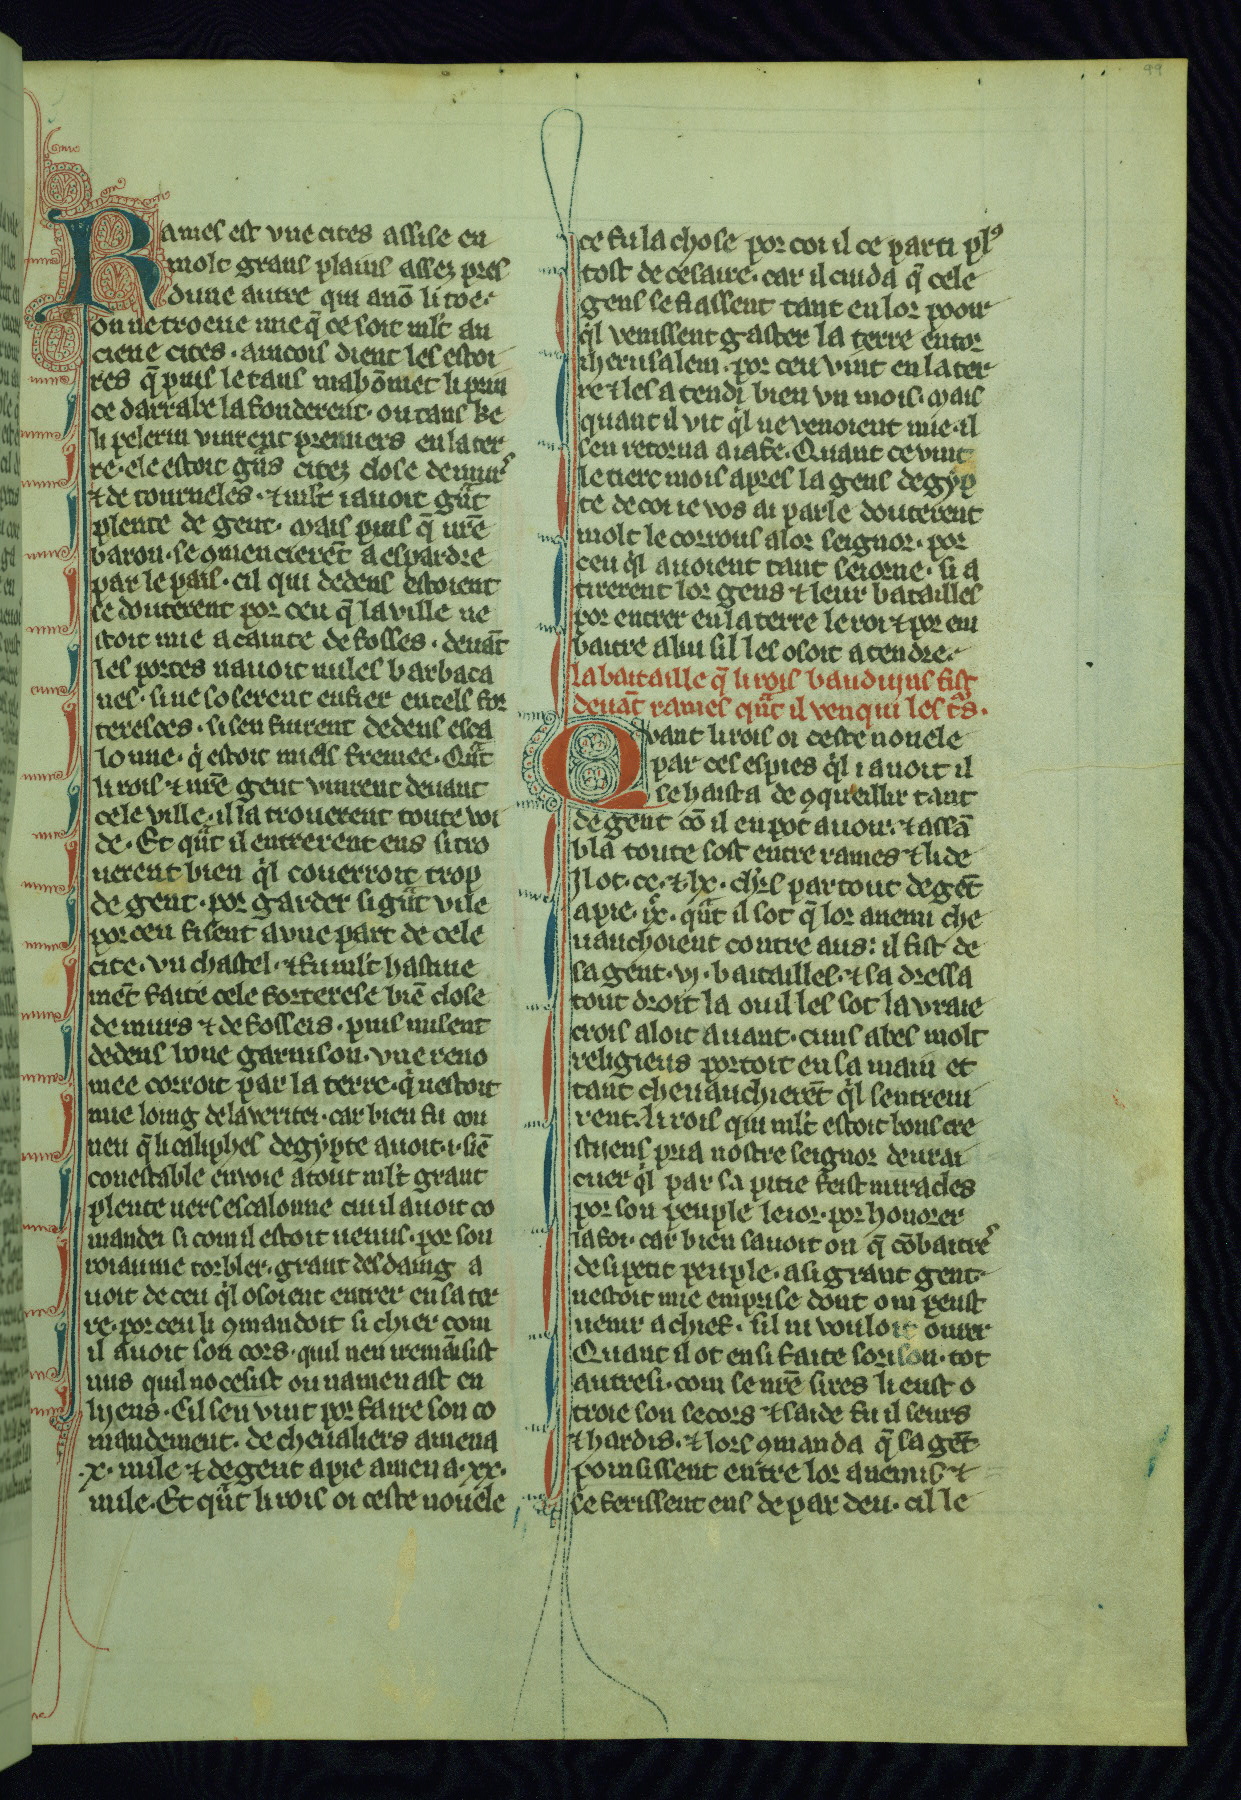 99
Rames est vne cites assise en
molt grans plains assez pres
dune autre qui a nō li toe.
on ne troeue mie q̄ ce soit ml̄t an
ciene cites. aincois dient les estoi
res q̄ puis le tans mahōmet li prin
ce darrabe la fonderent. ou tans ke
li pelerin vinrent premiers en la ter
re. ele estoit gn̄s citez close de murs
⁊ de tourneles. ⁊ ml̄t i auoit gn̄t
plente de gent. mais puis q̄ nr̄e
baron. se omencierēt a espardre
par le pais. cil qui dedens estoient
se douterent por ceu q̄ la ville ne
stoit mie a cainte de fosses. deuāt
les portes nauoit nules barbaca
nes. si ne soserent enfier en tells for
teresces. si sen fuirent dedens esca
lonne. q̇ estoit miels fremee. Qn̄t
li rois ⁊ nr̄e gent vinrent deuant
cele ville. il la trouerent toute voi
de. Et qn̄t il entrerent ens si tro
uerent bien q̇l couerroit trop
de gent. por garder si gn̄t vile
por ceu fisent a vne part de cele
cite. vn chastel. ⁊ fu ml̄t hastiue
mēt faite cele forterese biē close
de murs ⁊ de fosseis. puis misent
dedens bone garnison. vne reno
mee corroit par la terre. q̇ nestoit
mie loing de la veritei. car bien fu con
neu q̄ li caliphes degypte auoit .i. siē
conestable enuoie a tout ml̄t grant
plente uers escalonne cui il auoit co
mandei si com il estoit uenus. por son
roiaume torbler. grant desdaing a
uoit de ceu q̇l osoient entrer en sa ter
re. por ceu li 9mandoit si chier com
il auoit son cors. quil nen iremāsist
nus quil nocesist ou namenast en
lyens. Cil sen vint por faire son co
mandement. de cheualiers amena
.x. mile ⁊ de gent a pie amena .xx.
mile. Et qn̄t li rois oi ceste nouele
ce fu la chose por coi il ce parti pl9
tost de cesaire. car il cuida q̄ cele
gens se fiassent tant en lor pooir
q̇l venissent gaster la terre entor
iherusalem. por ceu vint en la ter
re ⁊ les atendi bien vn mois. mais
quant il vit q̇l ne venoient mie. il
sen retorna a iafe. Quant ce vint
le tierc mois apres la gens degyp
te de coi ie vos ai parle douterent
molt le corrous a lor seignor. por
ceu q̇l auoient tant seiorne. si a
tirerent lor gens ⁊ leur batailles
por entrer en la terre le roi ⁊ por em
batre a lui sil les osoit atendre.
la bataille q̄ li rois bauduins fist
deuāt rames qn̄t il venqui les t̄s.
Quant li rois oi ceste nouele
par ces espies q̇l i auoit il
se haista de 9queillir tant
de gent cō il en pot auoir. ⁊ assā
bla toute sost entre rames ⁊ lide
Il ot .cc. ⁊ lx. ch'rs partout de gēt
a pie .ixc. qn̄t il sot q̄ lor anemi che
uauchoient contre aus: il fist de
sa gent .vj. batailles. ⁊ sa dressa
tout droit la ou il les sot la vraie
crois aloit auant. cuns abes molt
religieus portoit en sa main et
tant cheuauchierēt q̇l sentreui
rent. li rois qui ml̄t estoit bons cre
stiens pria nostre seignor de urai
cuer q̇l par sa pitie feist miracles
por son peuple le ior. por honorer
la foi. car bien sauoit on q̄ cōbattre
de si petit peuple. a si grant gent
nestoit mie emprise dont on peust
uenir a chief. sil ni vouloit ourer
Quant il ot ensi faite sorison. tot
autresi. com se nr̄e sires li eust o
troie son secors ⁊ saide fu il seurs
⁊ hardis. ⁊ lors 9manda q̄ sa gēt
poinsissent entre lor anemis ⁊
se ferissent ens de par deu. cil le